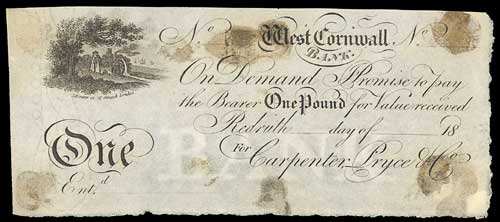 No West Cornwall No
BANK.
On Demand I Promise to pay
the Bearer One Pound for Value received
Redruth day of 18
One For Carpenter, Pryce & Co.
BANK
Ent.d